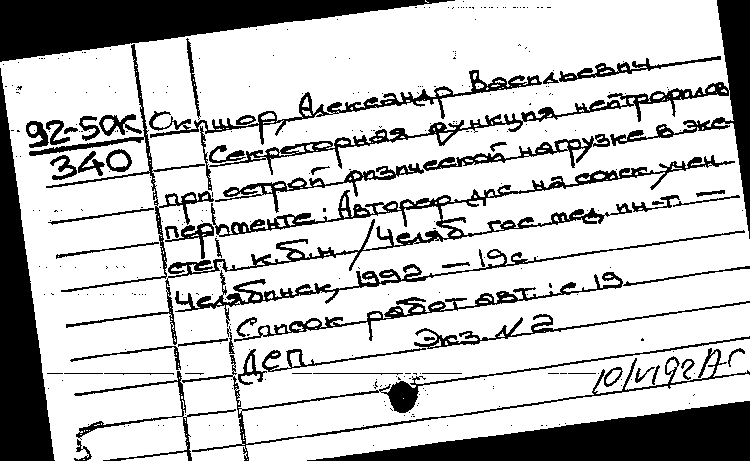 92-5ОК Окишор, Александр Васильевич
340 Секреторная функция нейтрофилов
при острой физической нагрузке в экс-
перименте: Автореф. дис. на соиск. учен.
степ. к.б.н. / Челяб. гос. мед. ин-т —
Челябинск, 1992. — 19с.
Список работ авт.: с. 19.
ДСП. Экз. N 2.
10/VI 92
5